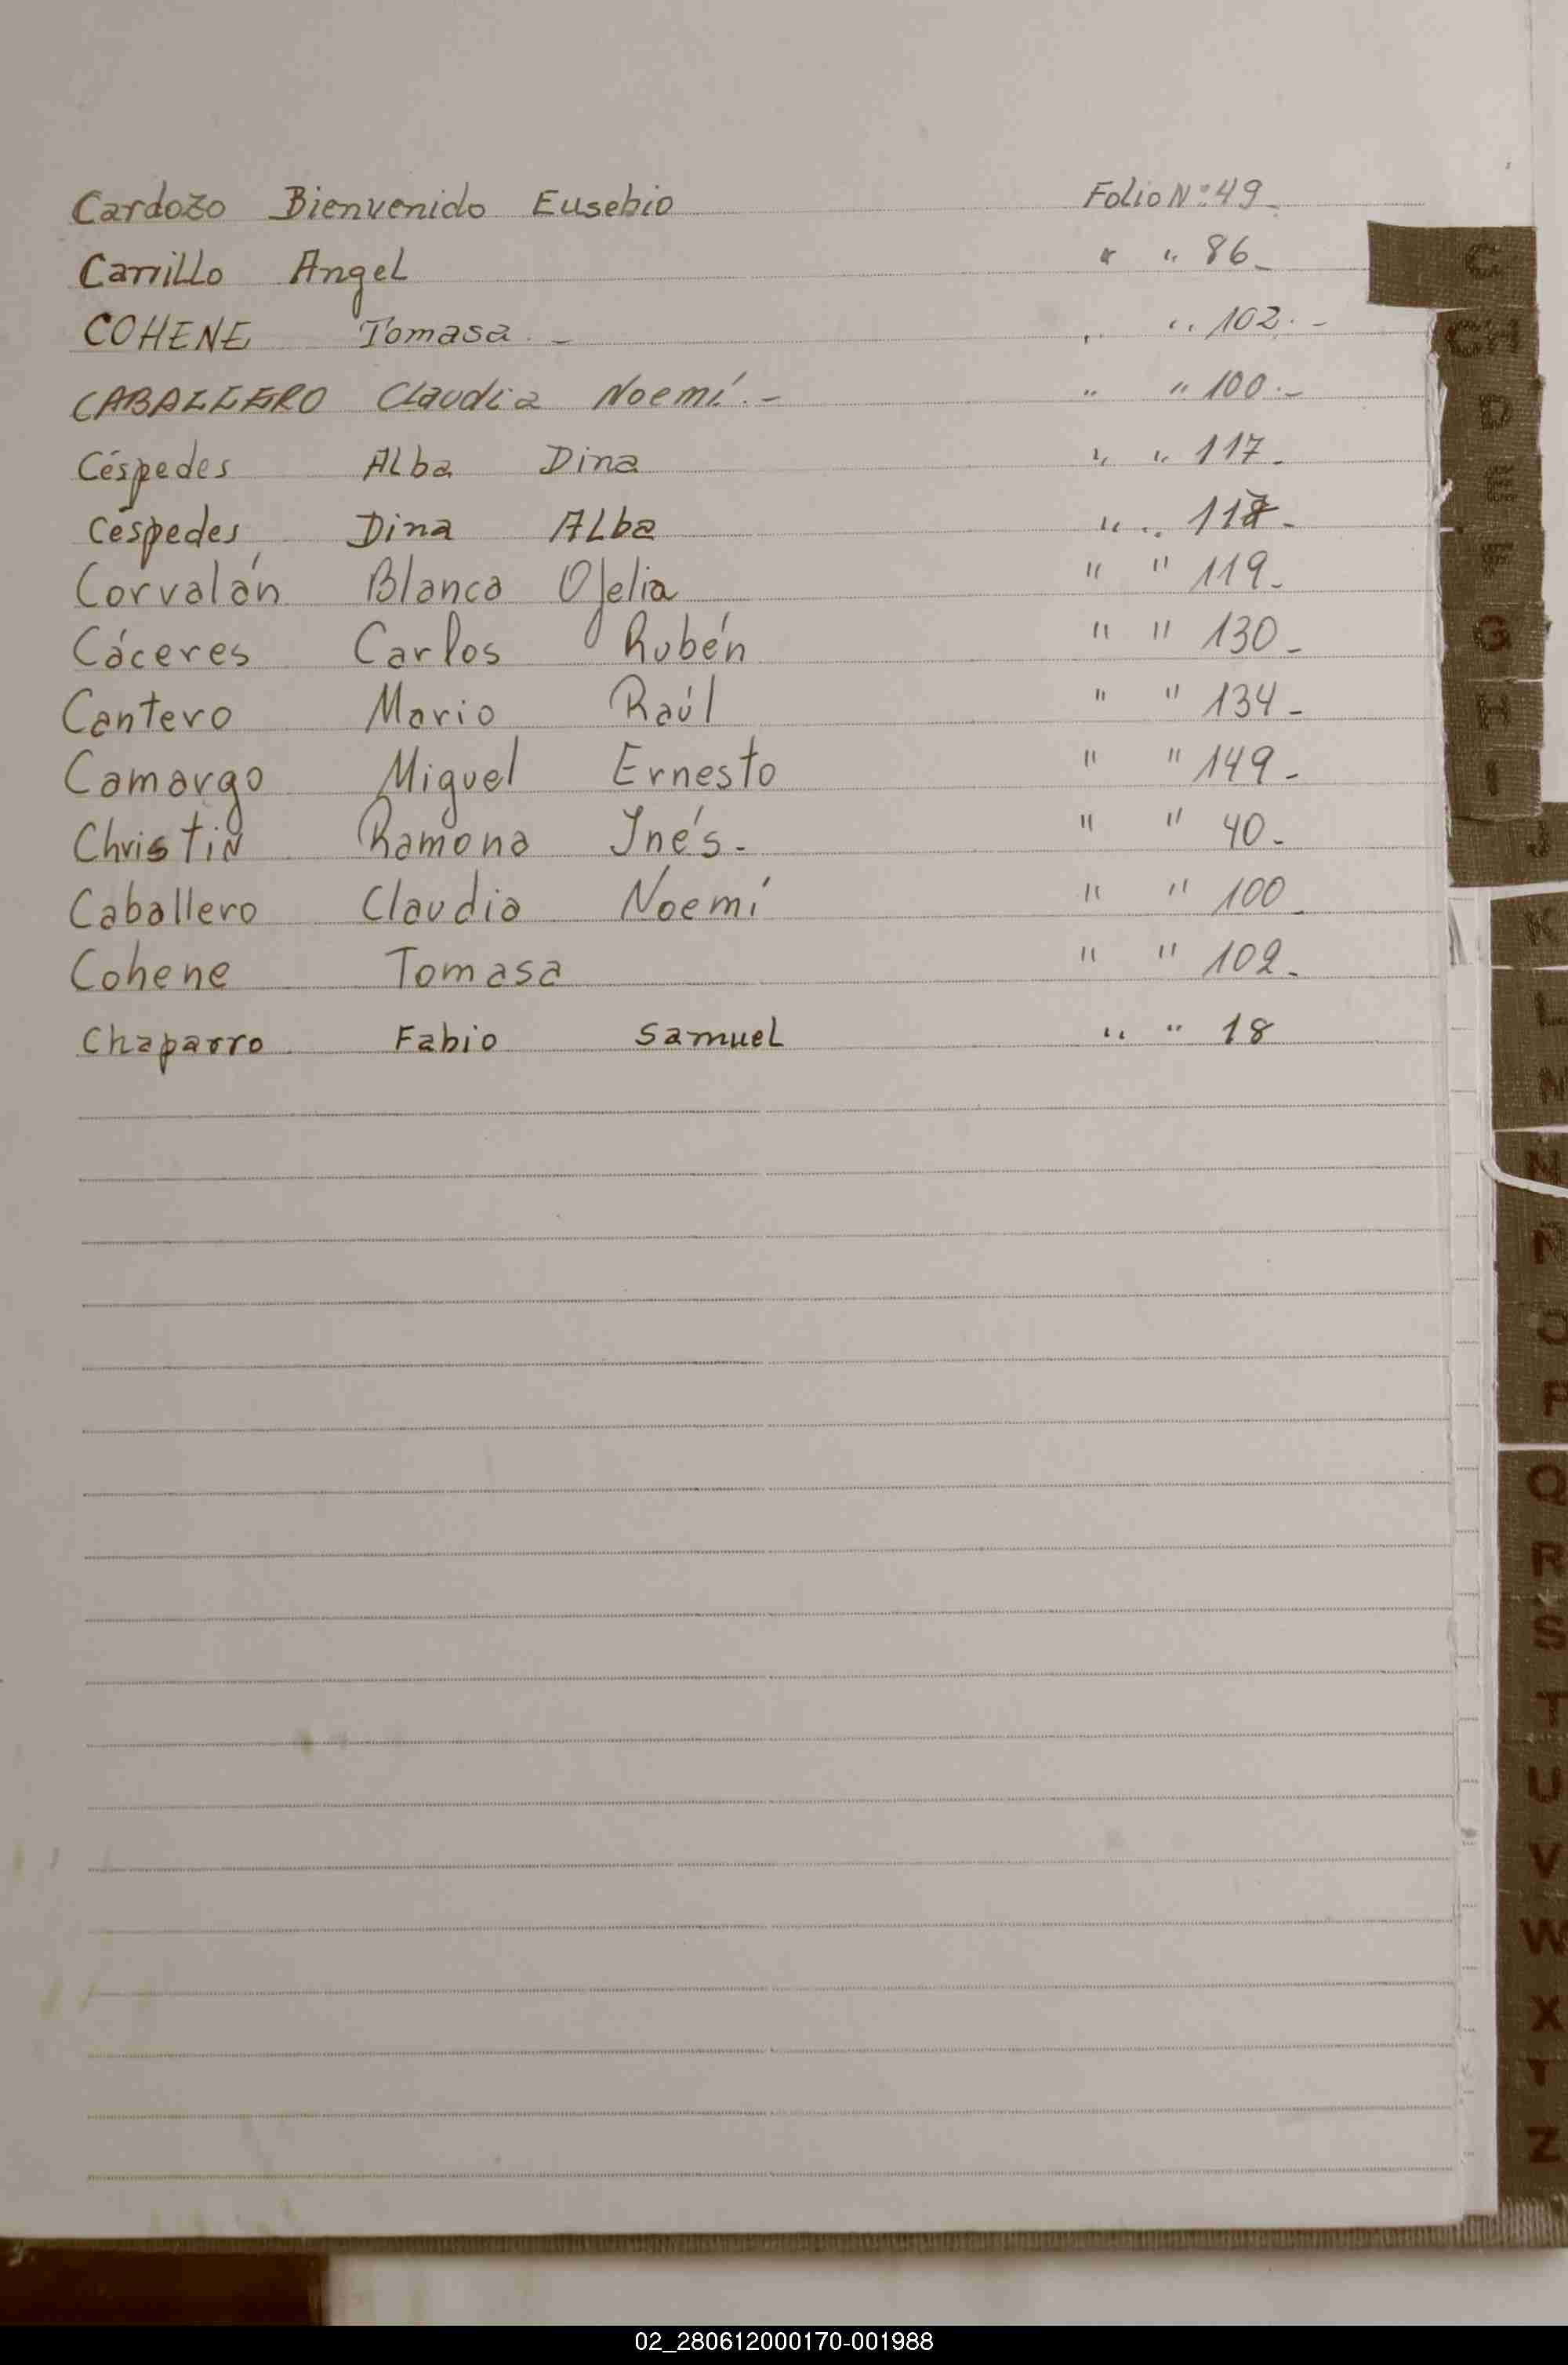 Cardozo Bienvenido Eusebio Folio Nº: 49_
Carrillo Angel " " 86_
COHENE Tomasa. _ " " 102. -
CABALLERO Claudia Noemí. - " " 100. -
Céspedes Alba Dina " " 117_
Céspedes Dina Alba " " 117 -
Corvalán Blanca Ofelia " " 119_
Cáceres Carlos Rubén " " 130_
Cantero Mario Raúl " " 134_
Camargo Miguel Ernesto " " 149_
Christin Ramona Inés - " " 40_
Caballero Claudia Noemí " " 100_
Cohene Tomasa " " 102_
Chaparro Fabio Samuel " " 18
C
CH
D
E
F
G
H
I
J
K
L
M
N
Ñ
O
P
Q
R
S
T
U
V
W
X
Y
Z
02_280612000170-001988